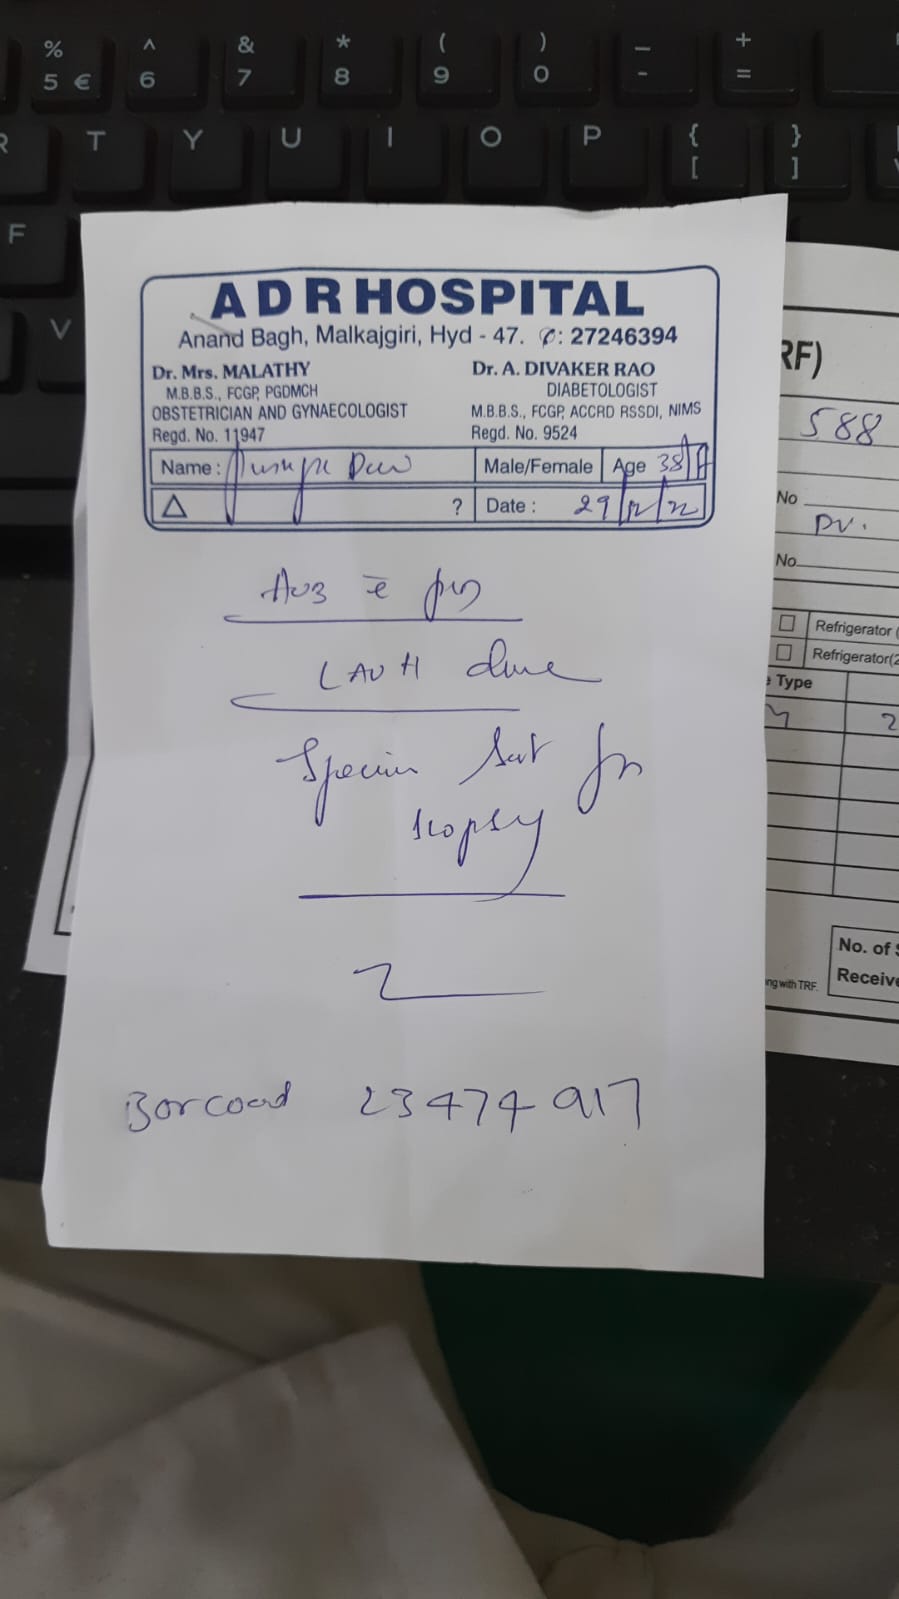 % ^ & * ( ) _ +
5 € 6 7 8 9 0 - =
R T Y U I O P { [ } ]
F
V
A D R HOSPITAL
Anand Bagh, Malkajgiri, Hyd - 47. ✆: 27246394
Dr. Mrs. MALATHY
M.B.B.S., FCGP, PGDMCH
OBSTETRICIAN AND GYNAECOLOGIST
Regd. No. 11947
Dr. A. DIVAKER RAO
DIABETOLOGIST
M.B.B.S., FCGP, ACCRD RSSDI, NIMS
Regd. No. 9524
Name : Male/Female Age 38/F
△ ? Date : 29/12/22
LAVH done
Specimen Sent for
Biopsy
Barcoad 23474917
RF)
588
No
DV.
No.
Refrigerator (
Refrigerator(2
Type
2
No. of S
Receive
ng with TRF.